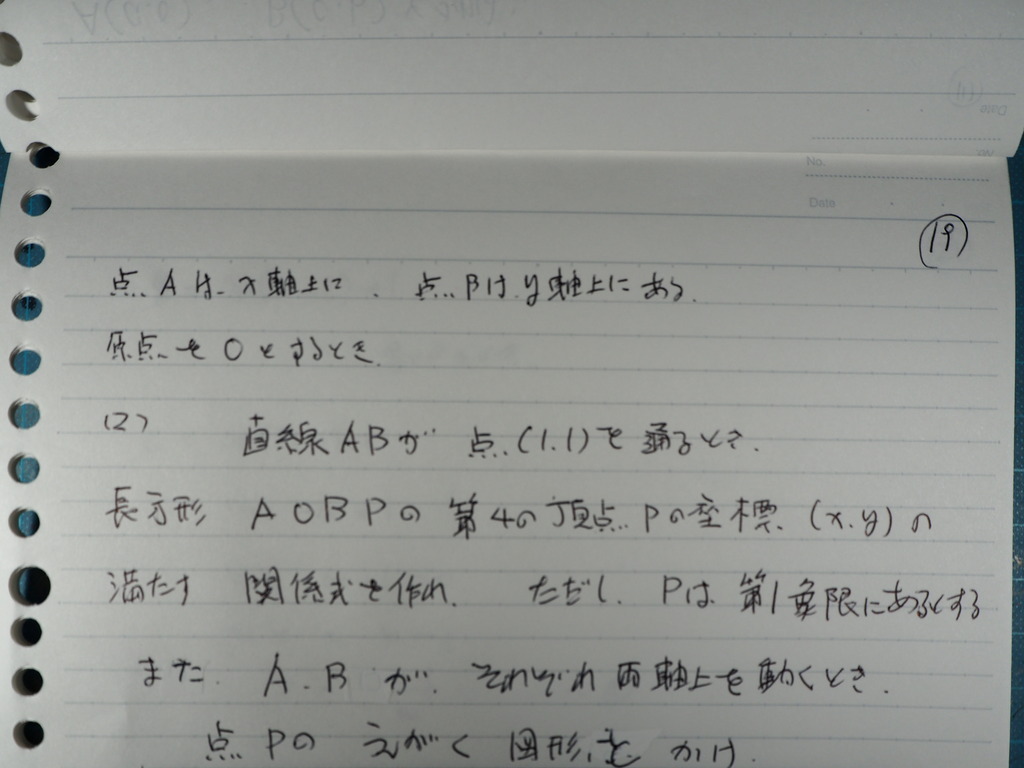 No.
Date
⑲
点Aは x軸上に、点Bは y軸上にある.
原点を Oとするとき
(2) 直線ABが 点(1.1)を通るとき.
長方形 AOBPの 第4の頂点Pの座標(x.y)の
満たす 関係式を作れ. ただし Pは第1象限にあるとする
また. A.Bが. それぞれ両軸上を動くとき.
点Pの えがく 図形を かけ.